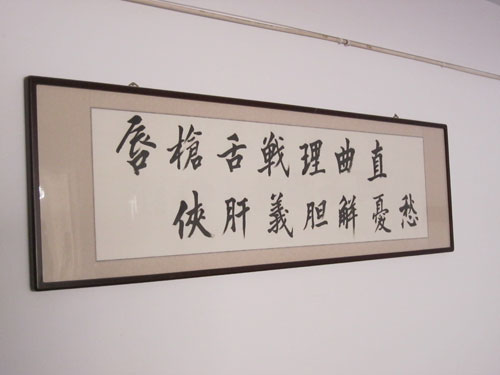 唇槍舌戦理曲直
俠肝義胆解憂愁